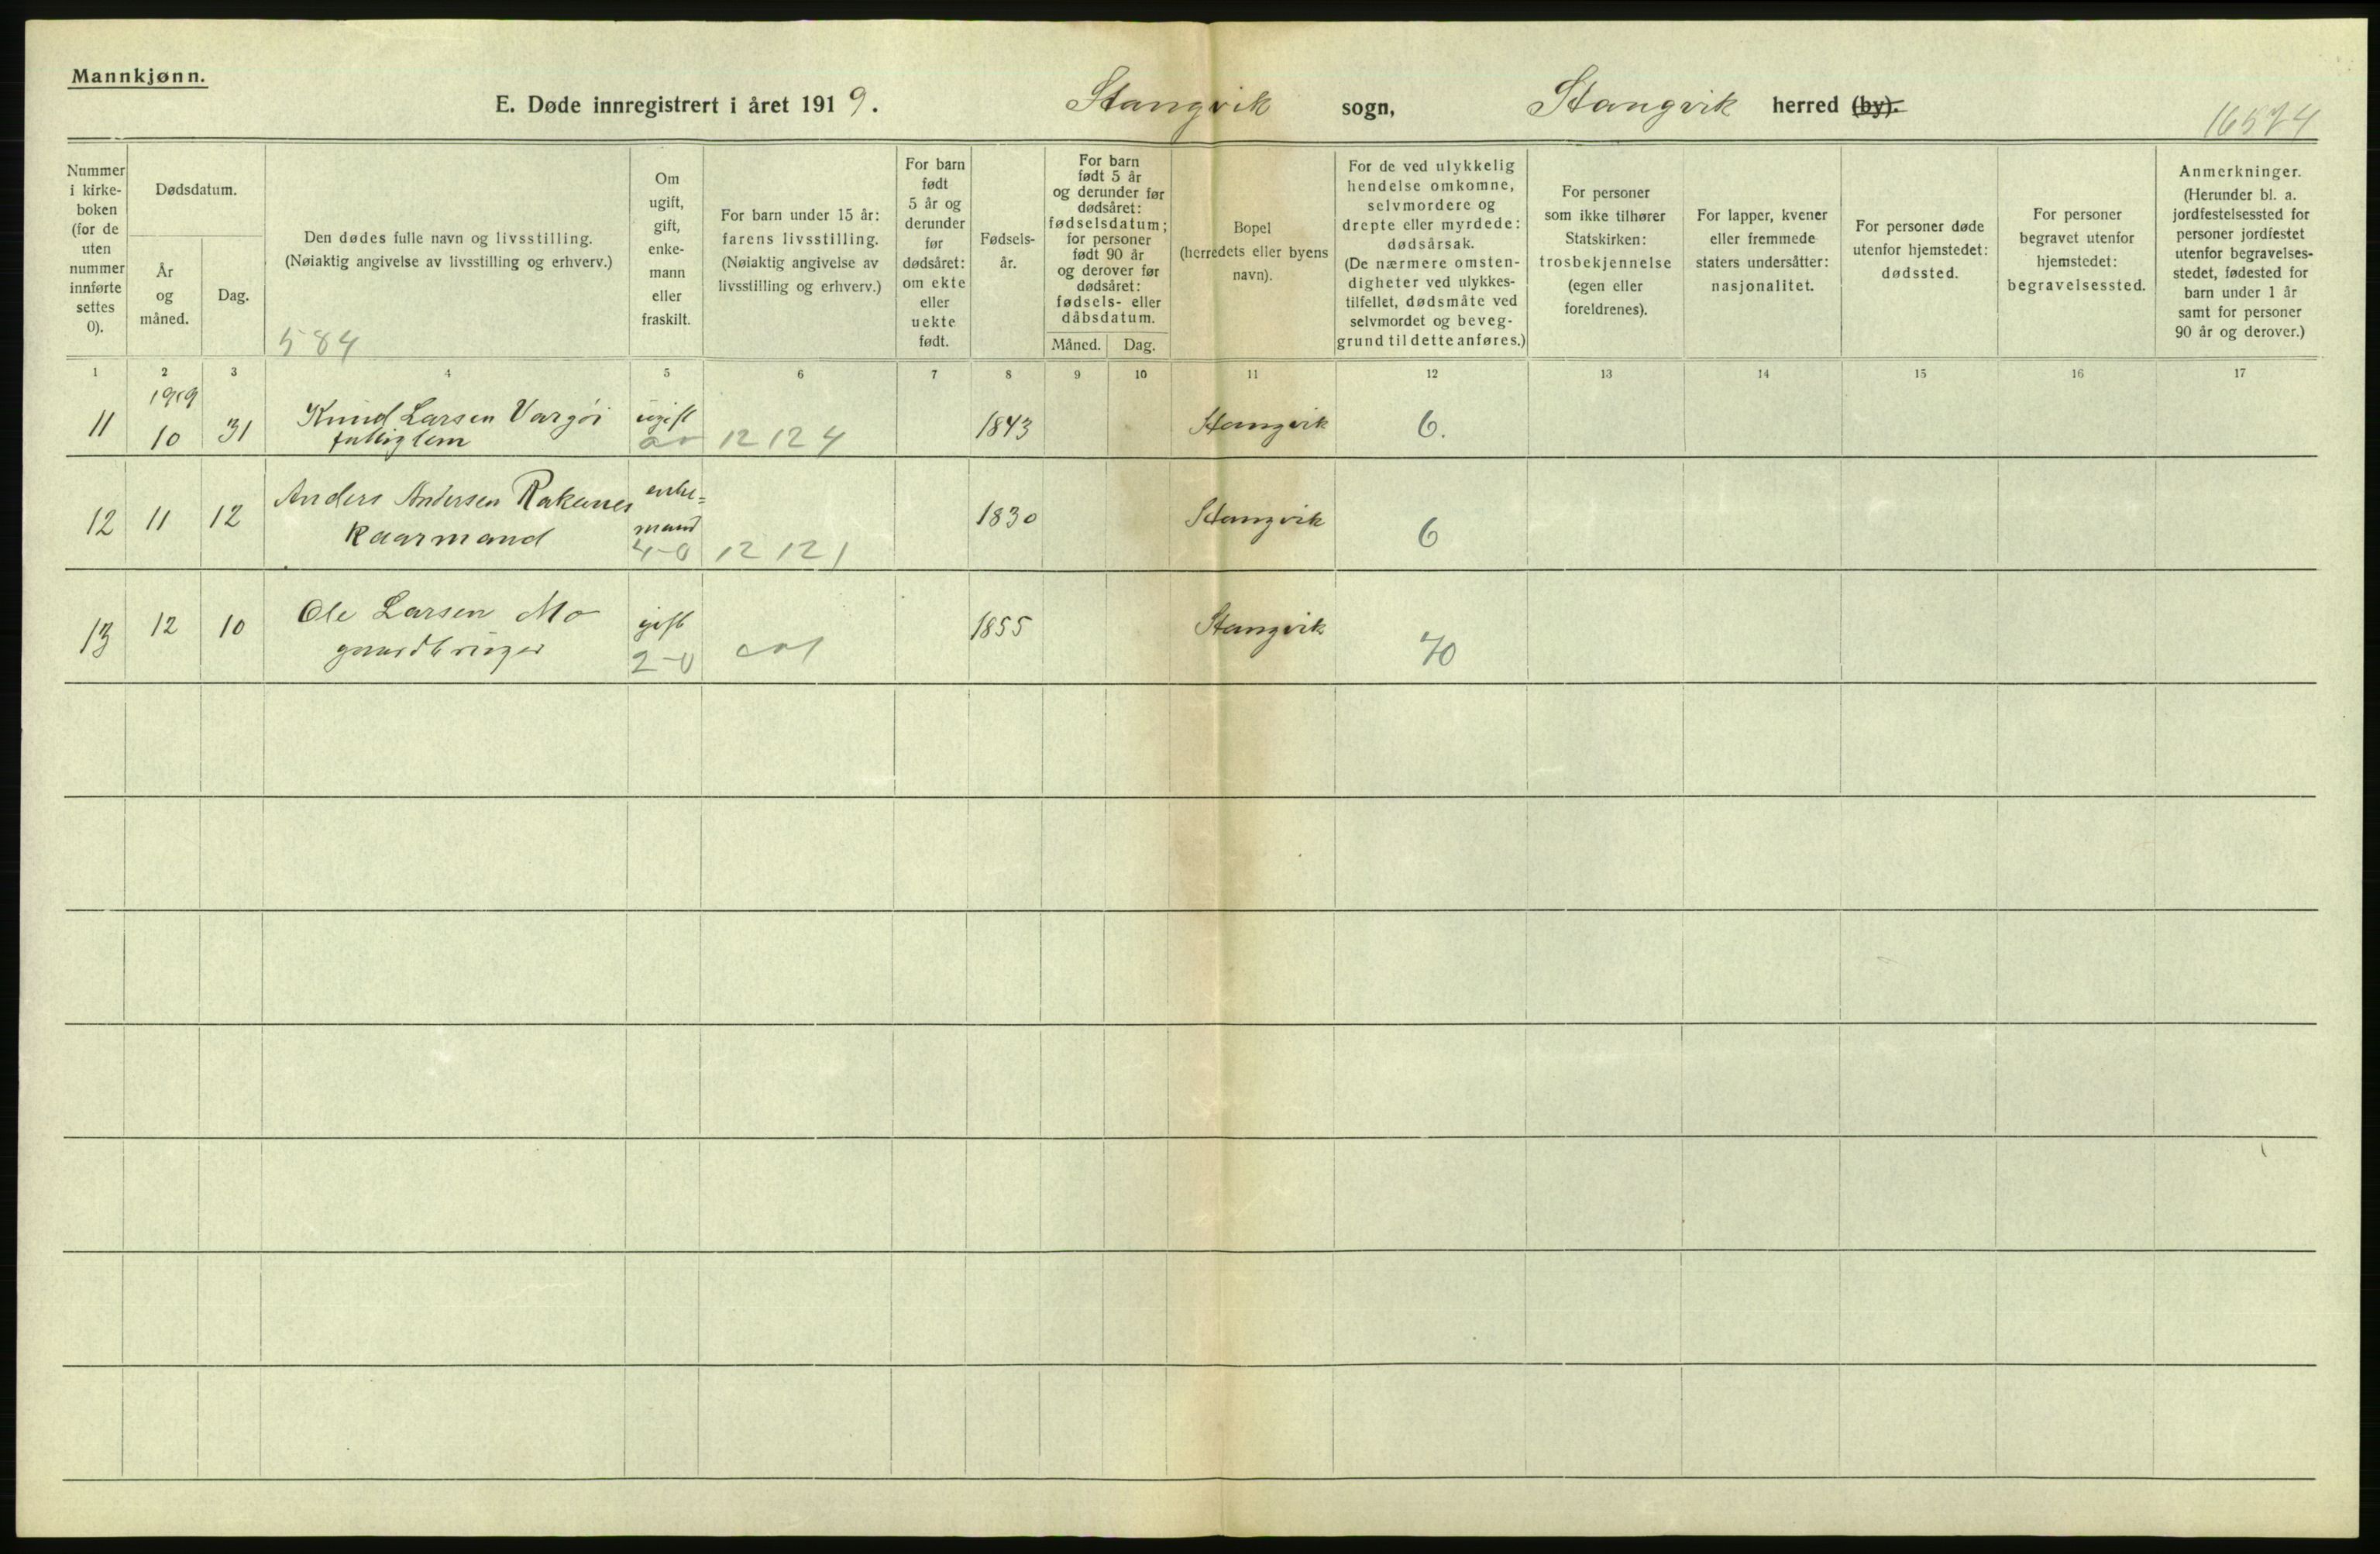 Mannkjønn.
E. Døde innregistrert i året 1919. Stangvik sogn, Stangvik herred (by).
16574
Nummer i kirke-boken (for de uten nummer innførte settes 0).
Dødsdatum.
År og måned.
Dag.
Den dødes fulle navn og livsstilling.
(Nøiaktig angivelse av livsstilling og erhverv.)
584
Om ugift, gift, enke-mann eller fraskilt.
For barn under 15 år: farens livsstilling. (Nøiaktig angivelse av livsstilling og erhverv.)
For barn født 5 år og derunder før dødsåret: om ekte eller uekte født.
Fødsels-år.
For barn født 5 år og derunder før dødsåret: fødselsdatum; for personer født 90 år og derover før dødsåret: fødsels- eller dåbsdatum.
Måned. Dag.
Bopel (herredets eller byens navn).
For de ved ulykkelig hendelse omkomne, selvmordere og drepte eller myrdede: dødsårsak. (De nærmere omsten-digheter ved ulykkes-tilfellet, dødsmåte ved selvmordet og beveg-grund til dette anføres.)
For personer som ikke tilhører Statskirken: trosbekjennelse (egen eller foreldrenes).
For lapper, kvener eller fremmede staters undersåtter: nasjonalitet.
For personer døde utenfor hjemstedet: dødssted.
For personer begravet utenfor hjemstedet: begravelsessted.
Anmerkninger. (Herunder bl. a. jordfestelsessted for personer jordfestet utenfor begravelses-stedet, fødested for barn under 1 år samt for personer 90 år og derover.)
1 2 3 4 5 6 7 8 9 10 11 12 13 14 15 16 17
1919
11 10 31 Knud Larsen Vargøi ugift 1843 Stangvik 6.
fattiglem 12 12 4
12 11 12 Anders Andersen Rakanes enke= 1830 Stangvik 6
Kaarmand mand
4-0 12 12 1
13 12 10 Ole Larsen Mo gift 1855 Stangvik 70
gaardbruger 2-0